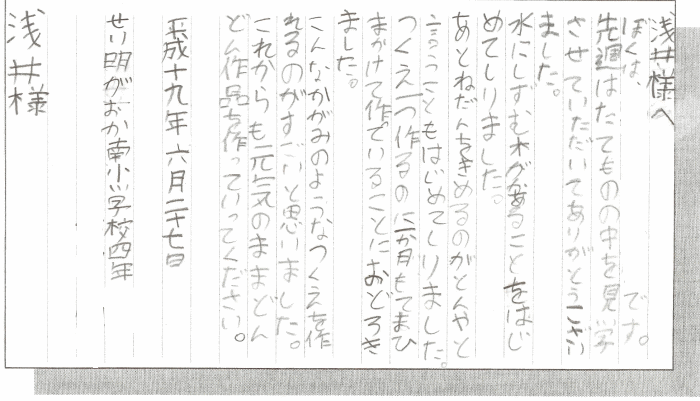 浅井様へ
ぼくは、 です。
先週はたてものの中を見学
させていただいてありがとうござい
ました。
水にしずむ木があることをはじ
めてしりました。
あとねだんをきめるのがとんやと
言うこともはじめてしりました。
つくえ一つ作るのに一か月もてまひ
まかけて作っていることにおどろき
ました。
こんなかがみのようなつくえを作
れるのがすごいと思いました。
これからも元気のままどん
どん作品を作っていってください。
平成十九年 六月二十七日
せい明がおか南小学校四年
浅井様